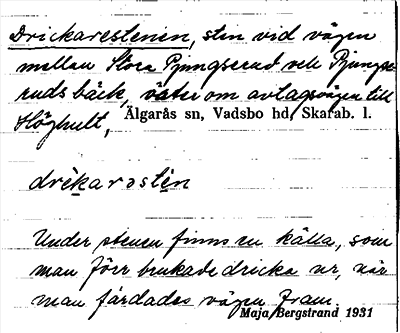 Drickarestenen, sten vid vägen
mellan Stora Pjungserud och Pjungse-
ruds bäck, väster om avtagsvägen till
Höghult, Älgarås sn, Vadsbo hd, Skarab. l.
drèkarəstèn
Under stenen finns en källa, som
man förr brukade dricka ur, när
man färdades vägen fram.
Maja Bergstrand 1931